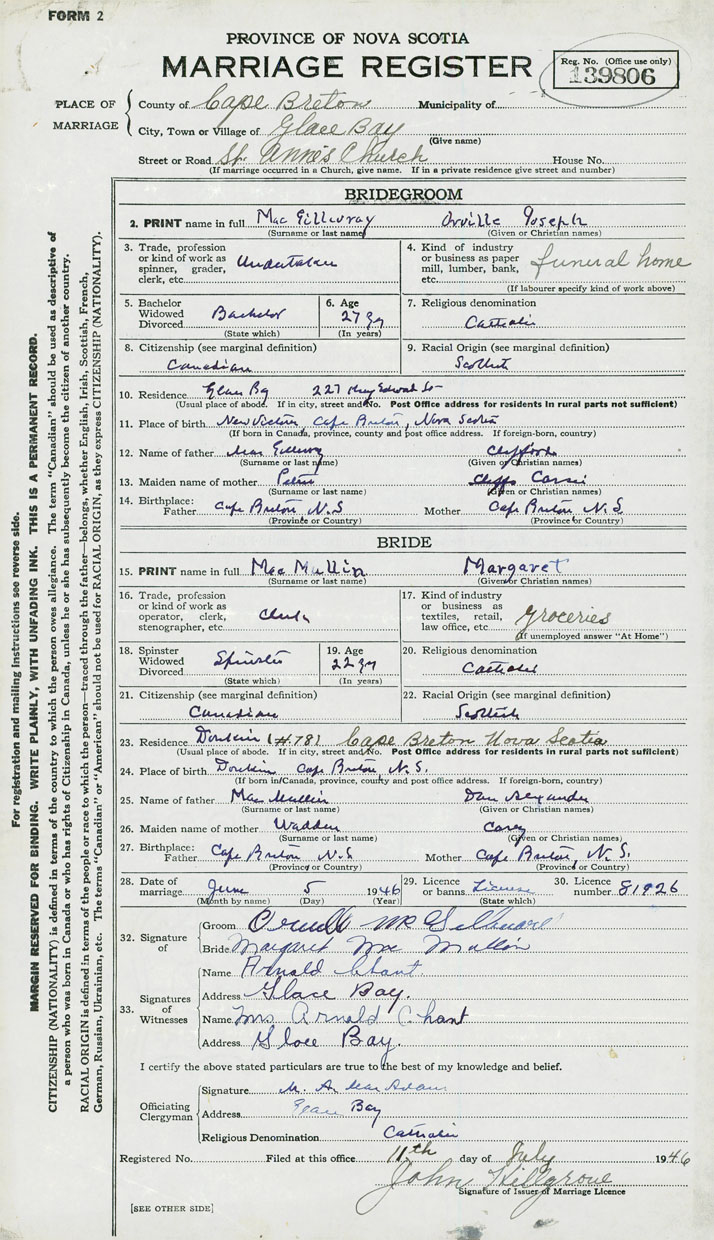 FORM 2
PROVINCE OF NOVA SCOTIA
MARRIAGE REGISTER
Reg. No. (Office use only)
139806
PLACE OF MARRIAGE
County of Cape Breton Municipality of
City, Town or Village of Glace Bay
(Give name)
Street or Road St. Anne's Church House No.
(If marriage occurred in a Church, give name. If in a private residence give street and number)
BRIDEGROOM
2. PRINT name in full Mac Gillivray Orville Joseph
(Surname or last name) (Given or Christian names)
3. Trade, profession or kind of work as spinner, grader, clerk, etc. Undertaker
4. Kind of industry or business as paper mill, lumber, bank, etc. funeral home
(If labourer specify kind of work above)
5. Bachelor Widowed Divorced Bachelor
(State which)
6. Age 27 yr
(In years)
7. Religious denomination
Catholic
8. Citizenship (see marginal definition)
Canadian
9. Racial Origin (see marginal definition)
Scottish
10. Residence Glace Bay 227 King Edward St
(Usual place of abode. If in city, street and No. Post Office address for residents in rural parts not sufficient)
11. Place of birth New Victoria, Cape Breton, Nova Scotia
(If born in Canada, province, county and post office address. If foreign-born, country)
12. Name of father Mac Gillivray Clifford
(Surname or last name) (Given or Christian names)
13. Maiden name of mother Cassie
(Surname or last name) (Given or Christian names)
14. Birthplace: Father Cape Breton, N.S Mother Cape Breton N.S.
(Province or Country) (Province or Country)
BRIDE
15. PRINT name in full Mac Mullin Margaret
(Surname or last name) (Given or Christian names)
16. Trade, profession or kind of work as operator, clerk, stenographer, etc. Clerk
17. Kind of industry or business as textiles, retail, law office, etc. groceries
(If unemployed answer "At Home")
18. Spinster Widowed Divorced Spinster
(State which)
19. Age 22 yr
(In years)
20. Religious denomination
Catholic
21. Citizenship (see marginal definition)
Canadian
22. Racial Origin (see marginal definition)
Scottish
23. Residence Donkin Cape Breton Nova Scotia
(Usual place of abode. If in city, street and No. Post Office address for residents in rural parts not sufficient)
24. Place of birth Donkin Cape Breton N.S.
(If born in Canada, province, county and post office address. If foreign-born, country)
25. Name of father Mac Mullin Dan Alexander
(Surname or last name) (Given or Christian names)
26. Maiden name of mother Wadden
(Surname or last name) (Given or Christian names)
27. Birthplace: Father Cape Breton N.S Mother Cape Breton, N.S.
(Province or Country) (Province or Country)
28. Date of marriage June 5 1946
(Month by name) (Day) (Year)
29. Licence or banns License
(State which)
30. Licence number 81926
32. Signature of
Groom
Bride Margaret Mac Mullin
33. Signatures of Witnesses
Name Arnold Chant
Address Glace Bay.
Name Mrs Arnold Chant
Address Glace Bay.
I certify the above stated particulars are true to the best of my knowledge and belief.
Officiating Clergyman
Signature M. A. MacAdam
Address Glace Bay
Religious Denomination Catholic
Registered No. Filed at this office 11th day of July 1946
John Hillgrove
Signature of Issuer of Marriage Licence
[SEE OTHER SIDE]
For registration and mailing instructions see reverse side.
MARGIN RESERVED FOR BINDING. WRITE PLAINLY, WITH UNFADING INK. THIS IS A PERMANENT RECORD.
CITIZENSHIP (NATIONALITY) is defined in terms of the country to which the person owes allegiance. The term "Canadian" should be used as descriptive of
a person who was born in Canada or who has rights of Citizenship in Canada, unless he or she has subsequently become the citizen of another country.
RACIAL ORIGIN is defined in terms of the people or race to which the person—traced through the father—belongs, whether English, Irish, Scottish, French,
German, Russian, Ukrainian, etc. The terms "Canadian" or "American" should not be used for RACIAL ORIGIN, as they express CITIZENSHIP (NATIONALITY).